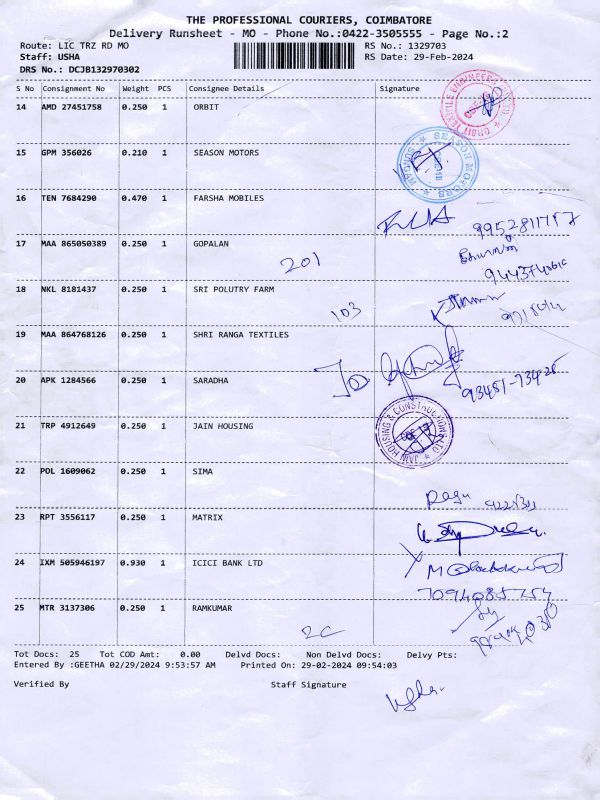 THE PROFESSIONAL COURIERS, COIMBATORE
Delivery Runsheet - MO - Phone No.:0422-3505555 - Page No.:2
Route: LIC TRZ RD MO RS No.: 1329703
Staff: USHA RS Date: 29-Feb-2024
DRS No.: DCJB132970302
S No Consignment No Weight PCS Consignee Details Signature
14 AMD 27451758 0.250 1 ORBIT
15 GPM 356026 0.210 1 SEASON MOTORS
SEASON MOTORS
16 TEN 7684290 0.470 1 FARSHA MOBILES
17 MAA 865050389 0.250 1 GOPALAN
201
18 NKL 8181437 0.250 1 SRI POLUTRY FARM
103
19 MAA 864768126 0.250 1 SHRI RANGA TEXTILES
20 APK 1284566 0.250 1 SARADHA
93451-73425
21 TRP 4912649 0.250 1 JAIN HOUSING
JAIN HOUSING & CONSTRUCTIONS LTD
22 POL 1609062 0.250 1 SIMA
23 RPT 3556117 0.250 1 MATRIX
24 IXM 505946197 0.930 1 ICICI BANK LTD
7094085754
25 MTR 3137306 0.250 1 RAMKUMAR
2C
Tot Docs: 25 Tot COD Amt: 0.00 Delvd Docs: Non Delvd Docs: Delvy Pts:
Entered By :GEETHA 02/29/2024 9:53:57 AM Printed On: 29-02-2024 09:54:03
Verified By Staff Signature